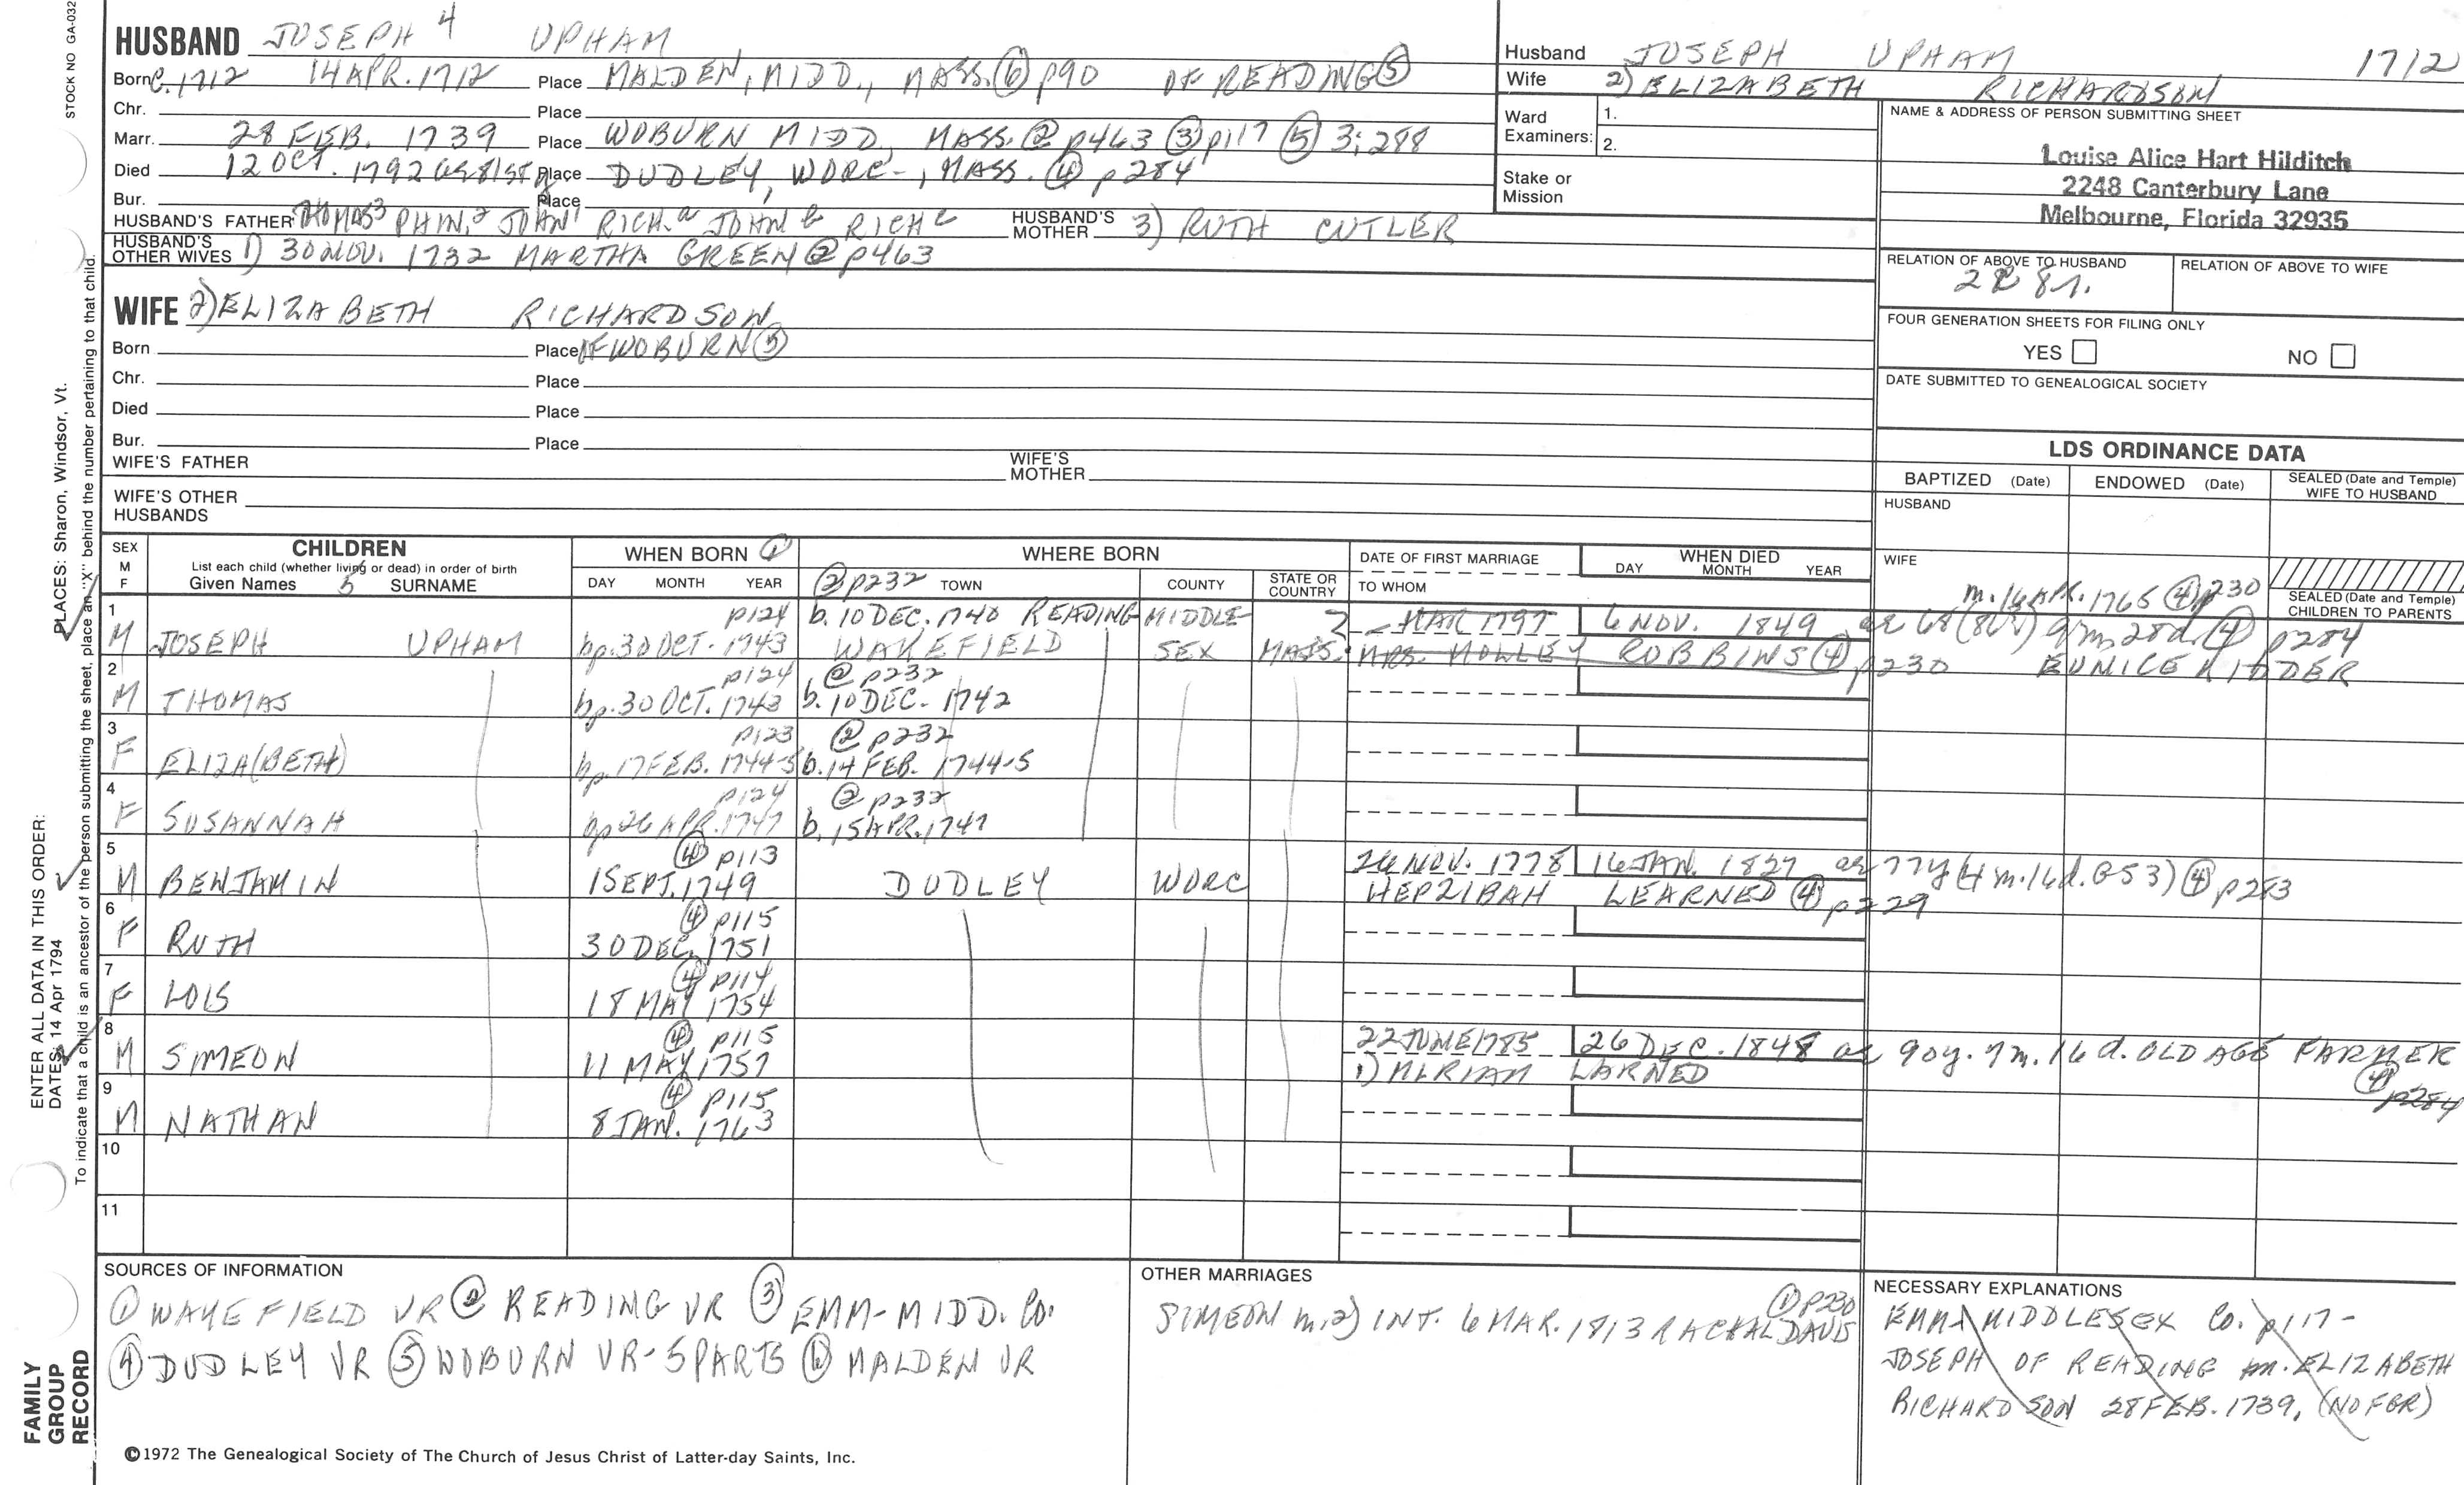 STOCK NO GA-032
HUSBAND JOSEPH 4 UPHAM
Born C. 1712 14 APR. 1712 Place MALDEN, MIDD., MASS. ⑥ p90 OF READING ⑤
Chr. Place
Marr. 28 FEB. 1739 Place WOBURN MIDD. MASS. ② p463 ③ p117 ⑤ 3:288
Died 12 OCT. 1792 Place DUDLEY, WORC-, MASS. ④ p284
Bur. Place
HUSBAND'S FATHER THOMAS3 PHIN.2 JOHN1 RICH.a JOHN b RICH c HUSBAND'S MOTHER 3) RUTH CUTLER
HUSBAND'S OTHER WIVES 1) 30 NOV. 1732 MARTHA GREEN ② p463
WIFE 2) ELIZABETH RICHARDSON
Born Place OF WOBURN ⑤
Chr. Place
Died Place
Bur. Place
WIFE'S FATHER WIFE'S MOTHER
WIFE'S OTHER HUSBANDS
Husband JOSEPH UPHAM 1712
Wife 2) ELIZABETH RICHARDSON
Ward Examiners: 1.
2.
Stake or Mission
NAME & ADDRESS OF PERSON SUBMITTING SHEET
Louise Alice Hart Hilditch
2248 Canterbury Lane
Melbourne, Florida 32935
RELATION OF ABOVE TO HUSBAND RELATION OF ABOVE TO WIFE
FOUR GENERATION SHEETS FOR FILING ONLY
YES NO
DATE SUBMITTED TO GENEALOGICAL SOCIETY
LDS ORDINANCE DATA
BAPTIZED (Date) ENDOWED (Date) SEALED (Date and Temple) WIFE TO HUSBAND
HUSBAND
WIFE
SEALED (Date and Temple) CHILDREN TO PARENTS
SEX M F
CHILDREN
List each child (whether living or dead) in order of birth
Given Names 5 SURNAME
WHEN BORN ①
DAY MONTH YEAR
WHERE BORN
② p232 TOWN COUNTY STATE OR COUNTRY
DATE OF FIRST MARRIAGE
TO WHOM
WHEN DIED
DAY MONTH YEAR
m. 16 APR. 1765 ④ p230
1 p124 b. 10 DEC. 1740 READING MIDDLE- MAR 1797 6 NOV. 1849 9m 28d ④ p284
M JOSEPH UPHAM bp. 30 OCT. 1743 WAKEFIELD SEX MASS. MRS. MOLLEY ROBBINS ④ p230 EUNICE KIDDER
2 p124 ② p232
M THOMAS bp. 30 OCT. 1743 b. 10 DEC. 1742
3 p123 ② p232
F ELIZA(BETH) bp. 17 FEB. 1744-5 b. 14 FEB. 1744-5
4 p124 ② p232
F SUSANNAH bp 26 APR. 1747 b. 15 APR. 1747
5 ④ p113 26 NOV. 1778 16 JAN. 1827 ae 77y (4m. 16d. GS3) ④ p283
M BENJAMIN 1 SEPT. 1749 DUDLEY WORC HEPZIBAH LEARNED ④ p229
6 ④ p115
F RUTH 30 DEC. 1751
7 ④ p114
F LOIS 18 MAY 1754
8 ④ p115 22 JUNE 1785 26 DEC. 1848 ae 90y. 7m. 16d. OLD AGE FARMER
M SIMEON 11 MAY 1757 1) MIRIAM LARNED ④ p284
9 ④ p115
M NATHAN 8 JAN. 1763
10
11
SOURCES OF INFORMATION
① WAKEFIELD VR ② READING VR ③ EMM-MIDD. Co.
④ DUDLEY VR ⑤ WOBURN VR-5 PARTS ⑥ MALDEN VR
OTHER MARRIAGES
① p230
SIMEON m. 2) INT. 6 MAR. 1813 RACHAL DAVIS
NECESSARY EXPLANATIONS
EMM MIDDLESEX Co. p117-
JOSEPH OF READING m. ELIZABETH
RICHARDSON 28 FEB. 1739. (NO FGR)
©1972 The Genealogical Society of The Church of Jesus Christ of Latter-day Saints, Inc.
FAMILY GROUP RECORD
ENTER ALL DATA IN THIS ORDER:
DATES: 14 Apr 1794
PLACES: Sharon, Windsor, Vt.
To indicate that a child is an ancestor of the person submitting the sheet, place an "X" behind the number pertaining to that child.